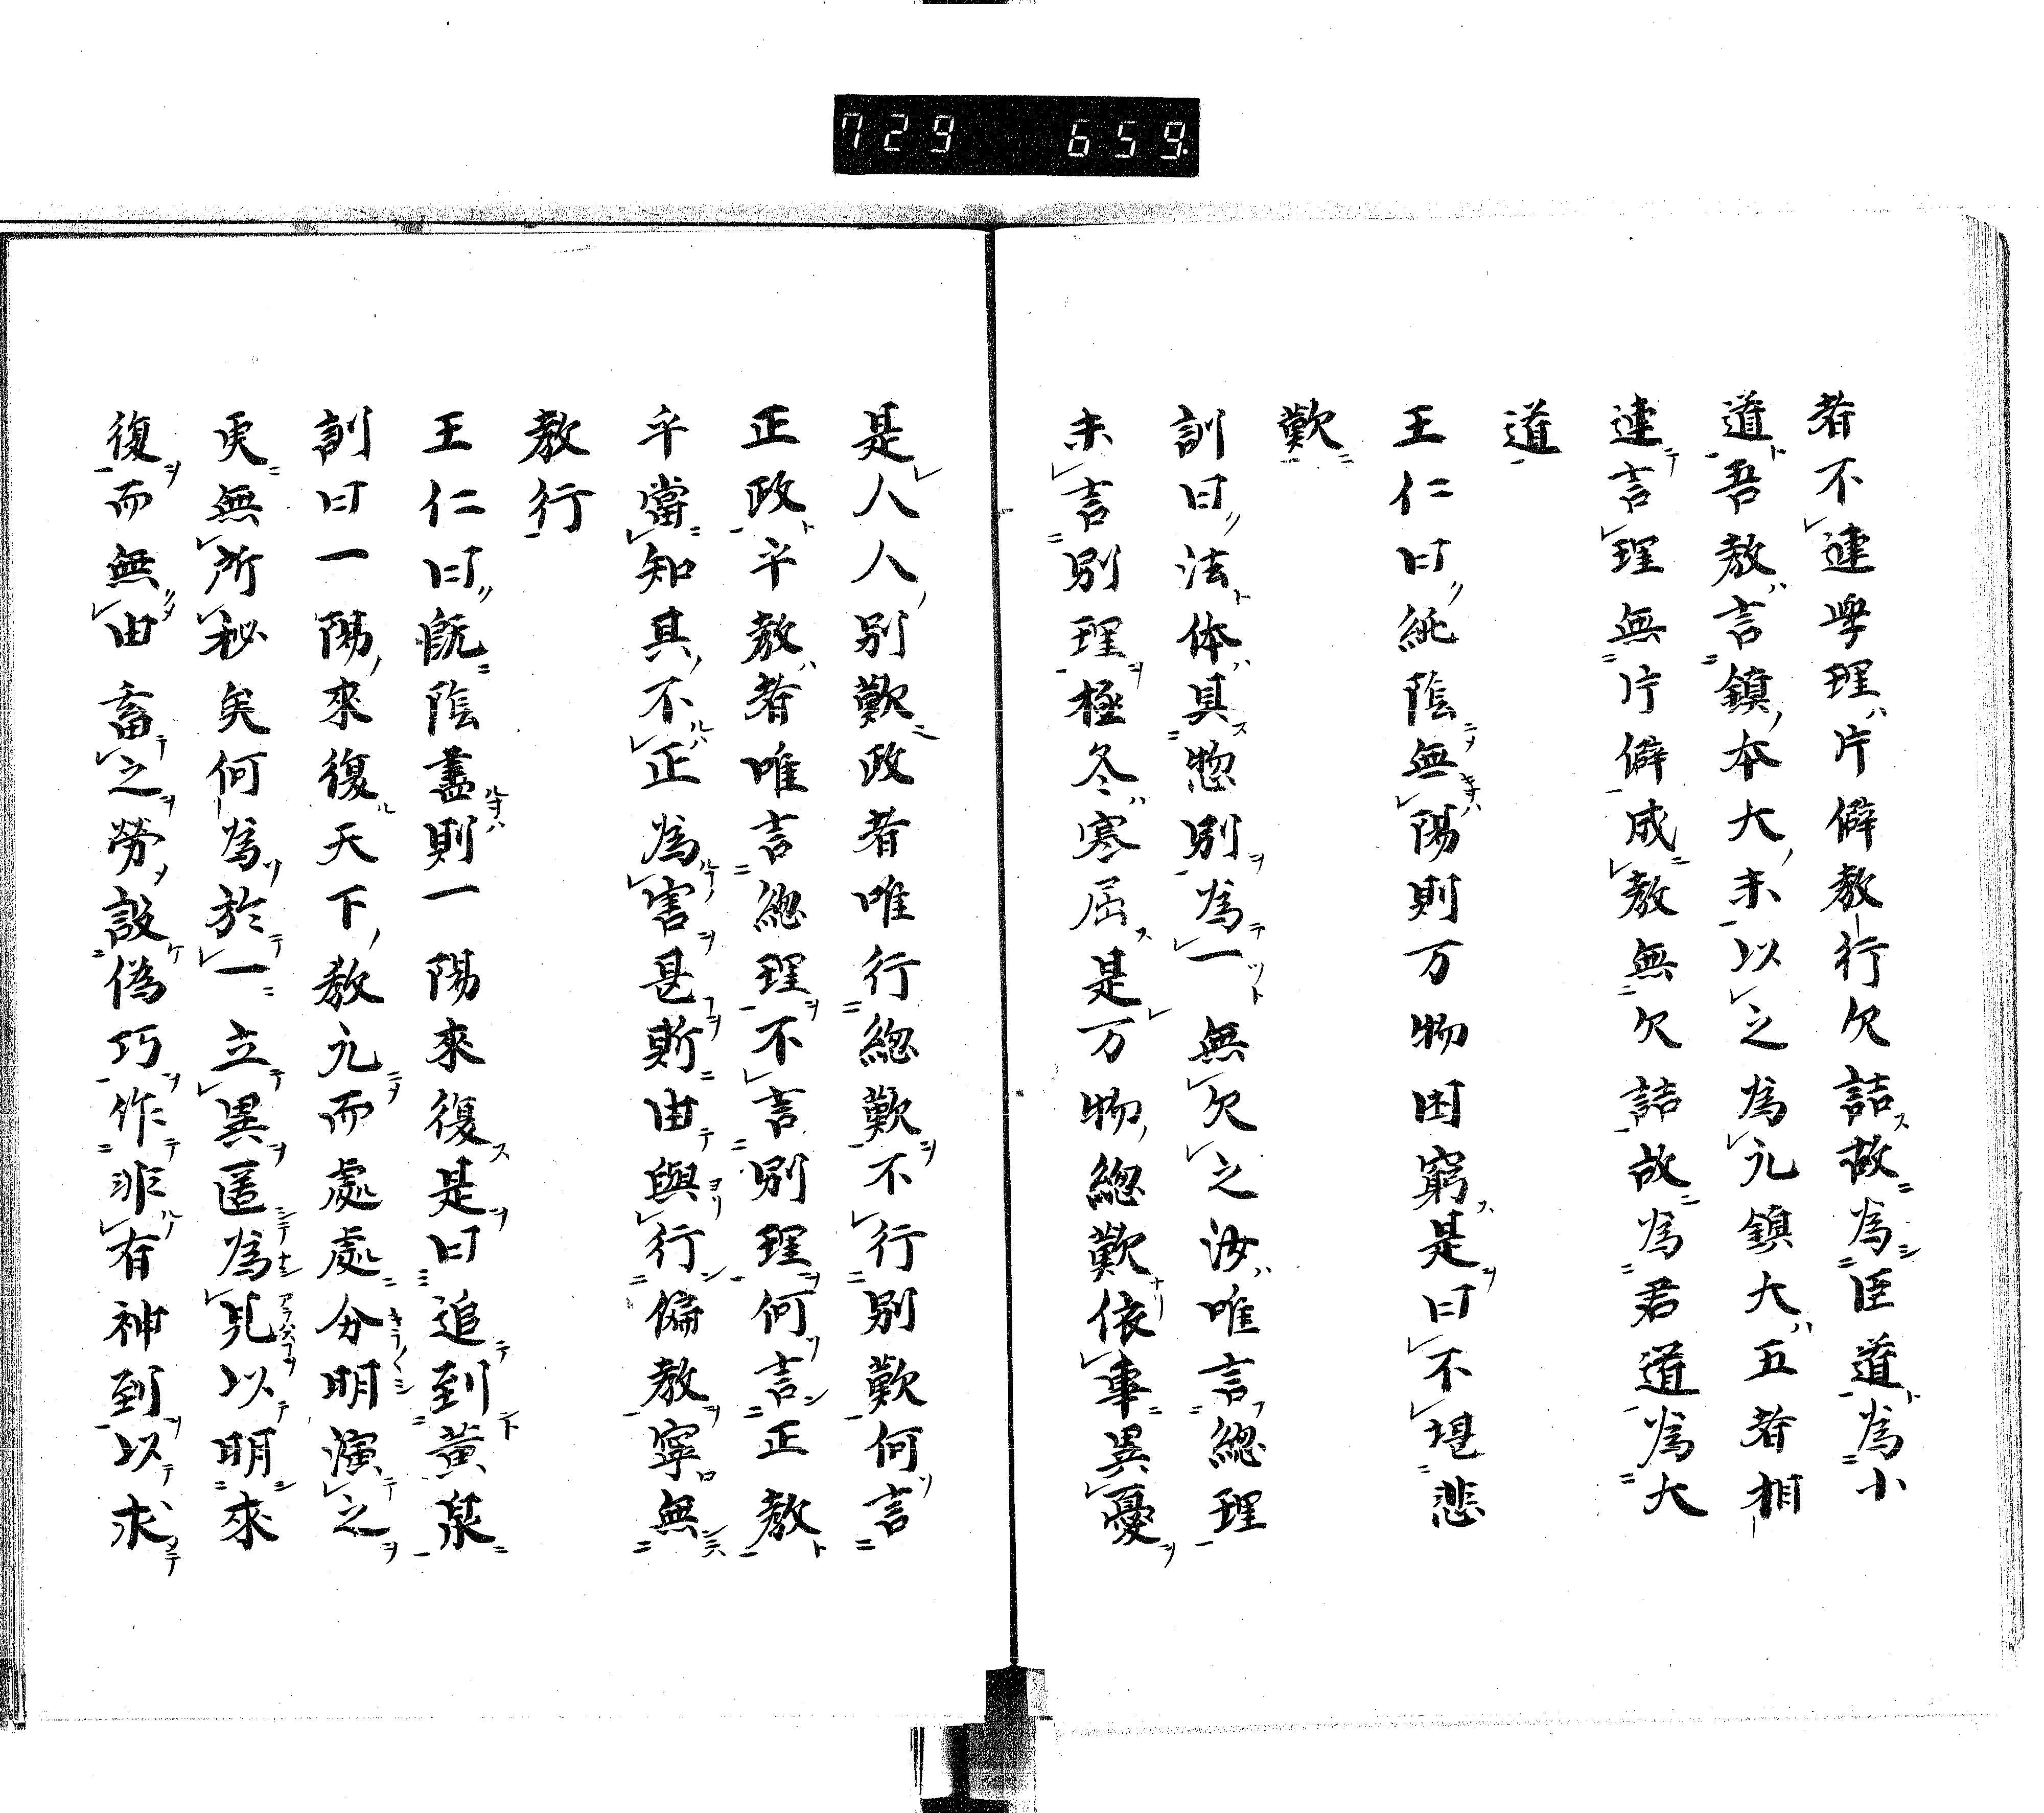 729 659
者不連學理片僻教行欠詰故為臣道為小
道吾教言鎮本大末以之為元鎮大五者相
連言理無片僻成教無欠詰故為君道為大
道
王仁曰純陰無陽則万物困窮是曰不堪悲
歎
訓曰法体具惣別為一無欠之汝唯言總理
未言別理極冬寒屈是万物總歎依事異憂
是人人別歎政者唯行總歎不行別歎何言
正政乎教者唯言總理不言別理何言正教
乎當知其不正為害甚斯由與行偏教寧無
教行
王仁曰既陰盡則一陽來復是曰追到黄泉
訓曰一陽來復天下教元而處處分明演之
更無所秘矣何為於一立異匿為見以明來
復而無由畜之勞設偽巧作非有神到以求